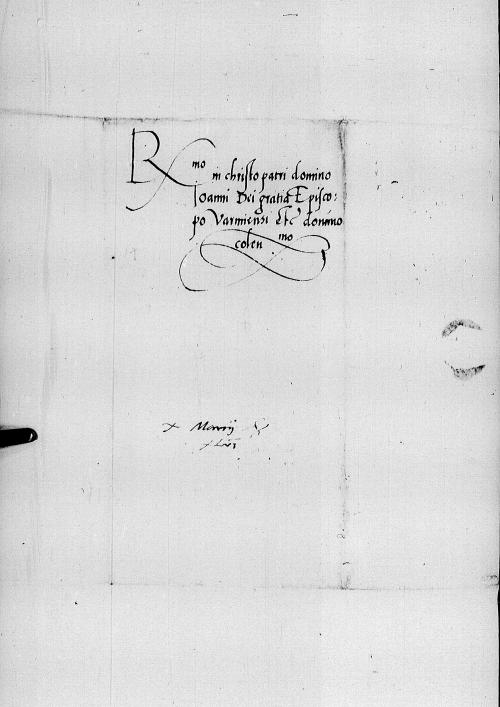 Rmo
in christo patri domino
Ioanni Dei gratia Episco-
po Varmiensi Etc domino
colenmo